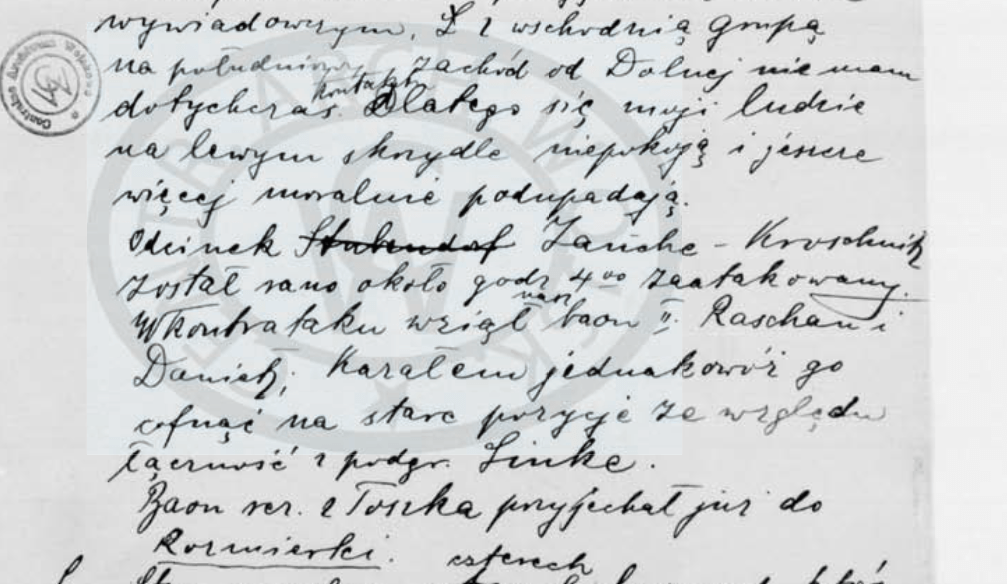 wywiadowczym. Z wschodnią grupą
na południowy zachód od Dolnej nie mam
kontaktu
dotychczas. Dlatego się moji ludzie
na lewym skrzydle niepokoją i jeszcze
więcej moralnie podupadają.
Odcinek Stubendorf Janche - Kroschnitz
został rano około godz 4⁰⁰ zaatakowany.
W kontrataku wziął nasz baon II. Raschau i
Danietz; Kazałem jednakowóż go
cofnąć na stare pozycje ze względu
łączność z podgr. Linke.
Baon rez. z Toszka przyjechał już do
Rozmierki. czterech